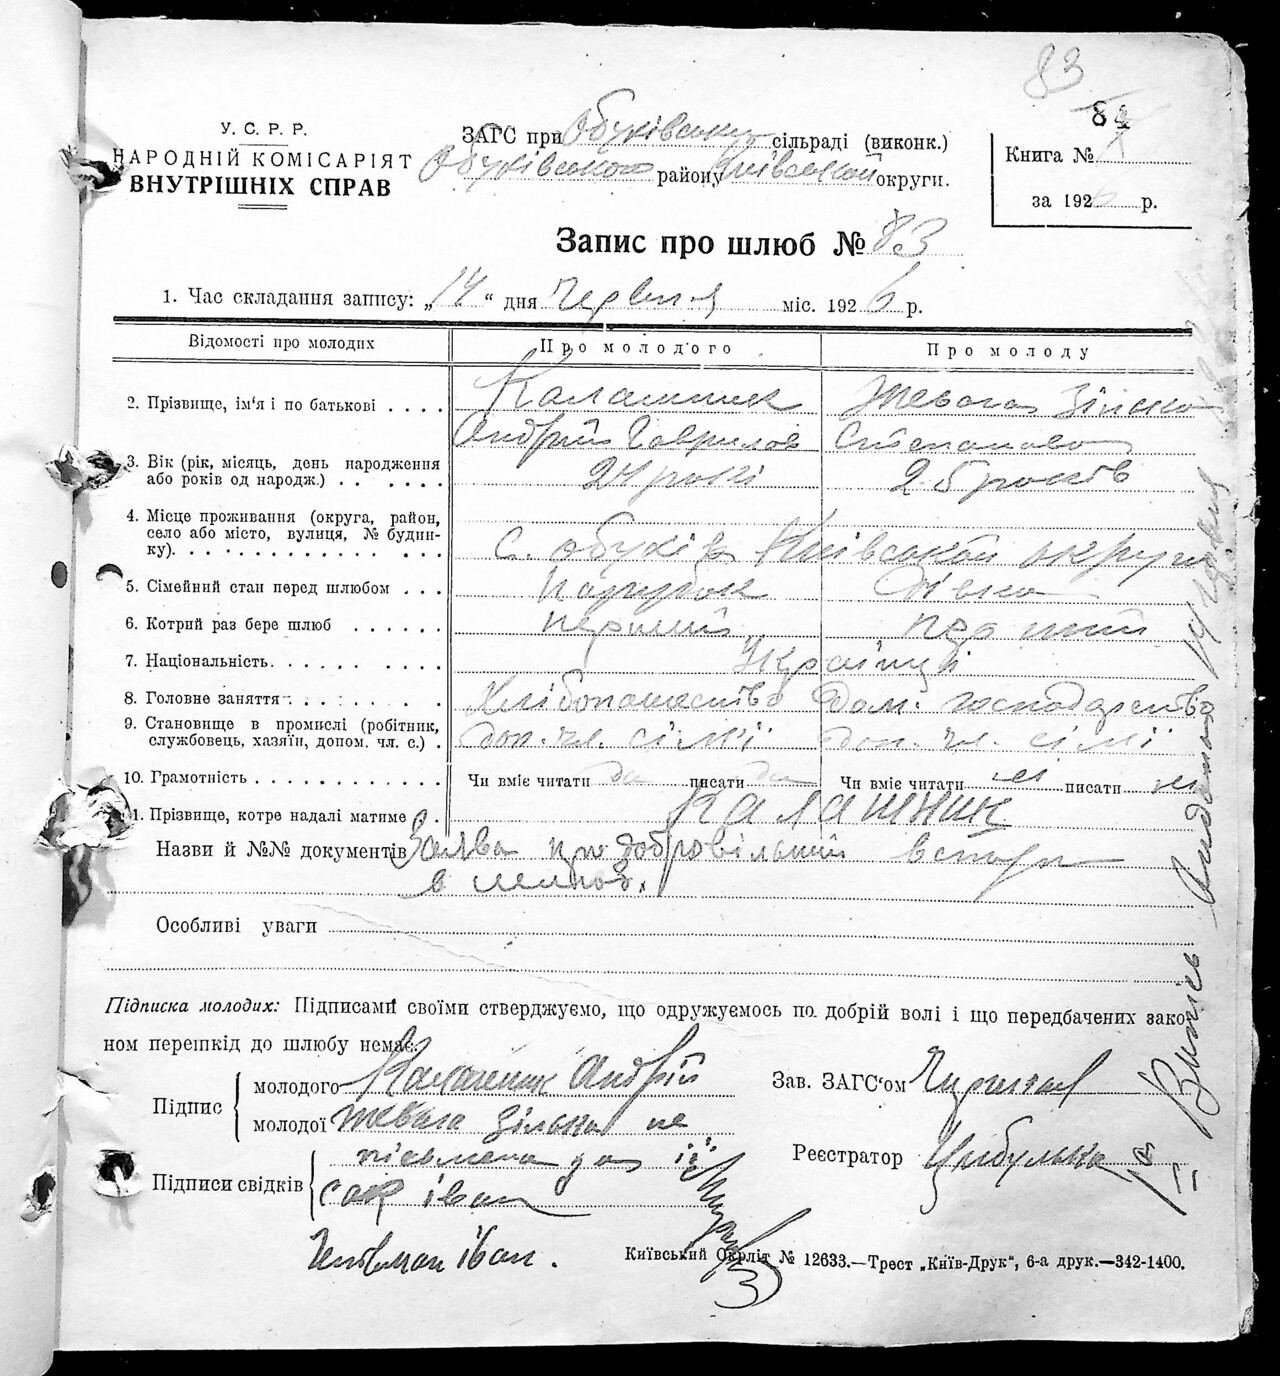 83
84
У. С. Р. Р.
НАРОДНІЙ КОМІСАРІЯТ
ВНУТРІШНІХ СПРАВ
ЗАГС при Обухівськ сільраді (виконк.)
Обухівського району Київської округи.
Книга №
за 1926 р.
Запис про шлюб № 83
1. Час складання запису: „14“ дня Червня міс. 1926 р.
Відомості про молодих Про молодого Про молоду
2. Прізвище, ім'я і по батькові . . . . Калашник Жевага Зінька
Андрій Гаврилов Степанова
3. Вік (рік, місяць, день народження
або років од народж.) . . . . . . 24 рокі 25 років
4. Місце проживання (округа, район,
село або місто, вулиця, № будин-
ку). . . . . . . . . . . . . . . с. Обухів Київської округи
5. Сімейний стан перед шлюбом . . . Парубок Дівка
6. Котрий раз бере шлюб . . . . . . перший перший
7. Національність. . . . . . . . . Українці
8. Головне заняття . . . . . . . . Хлібопашество Дом. господарство
9. Становище в промислі (робітник,
службовець, хазяїн, допом. чл. с.) . доп. чл. сімї доп. чл. сімї
10. Грамотність . . . . . . . . . . . Чи вміє читати да писати да Чи вміє читати ні писати ні
11. Прізвище, котре надалі матиме . . Калашник
Назви й №№ документів Заява про добровільний вступ
в шлюб.
Особливі уваги
Підписка молодих: Підписами своїми стверджуємо, що одружуємось по добрій волі і що передбачених зако
ном перешкід до шлюбу немає.
Підпис
молодого Калашник Андрій
молодої Жевага Зінька не
письмена за її
Підписи свідків
Сак Іван
Іван.
Зав. ЗАГС'ом
Реєстратор Цибулька
Київський Окрліт № 12633.—Трест „Київ-Друк“, 6-а друк.—342-1400.
Випись видана 14 червня